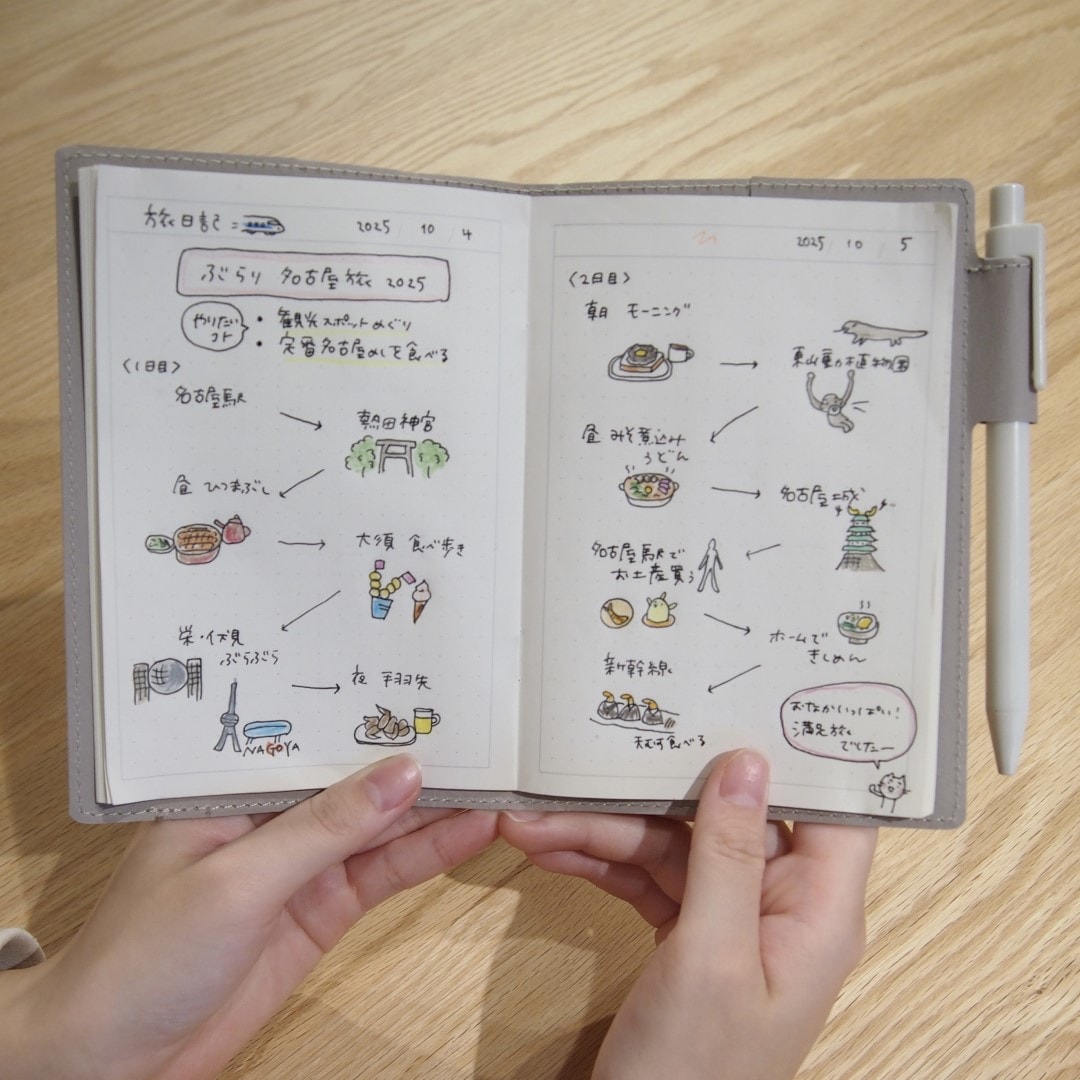 旅日記
2025 / 10 / 4
ぶらり 名古屋旅 2025
やりたい
コト
• 観光スポットめぐり
• 定番名古屋めしを食べる
〈1日目〉
名古屋駅
熱田神宮
昼 ひつまぶし
大須 食べ歩き
栄・伏見
ぶらぶら
NAGOYA
夜 手羽先
2025 / 10 / 5
〈2日目〉
朝 モーニング
東山動植物園
昼 みそ煮込み
うどん
名古屋城
名古屋駅で
お土産買う
ホームで
きしめん
新幹線
天むす食べる
おなかいっぱい!
満足旅
でしたー